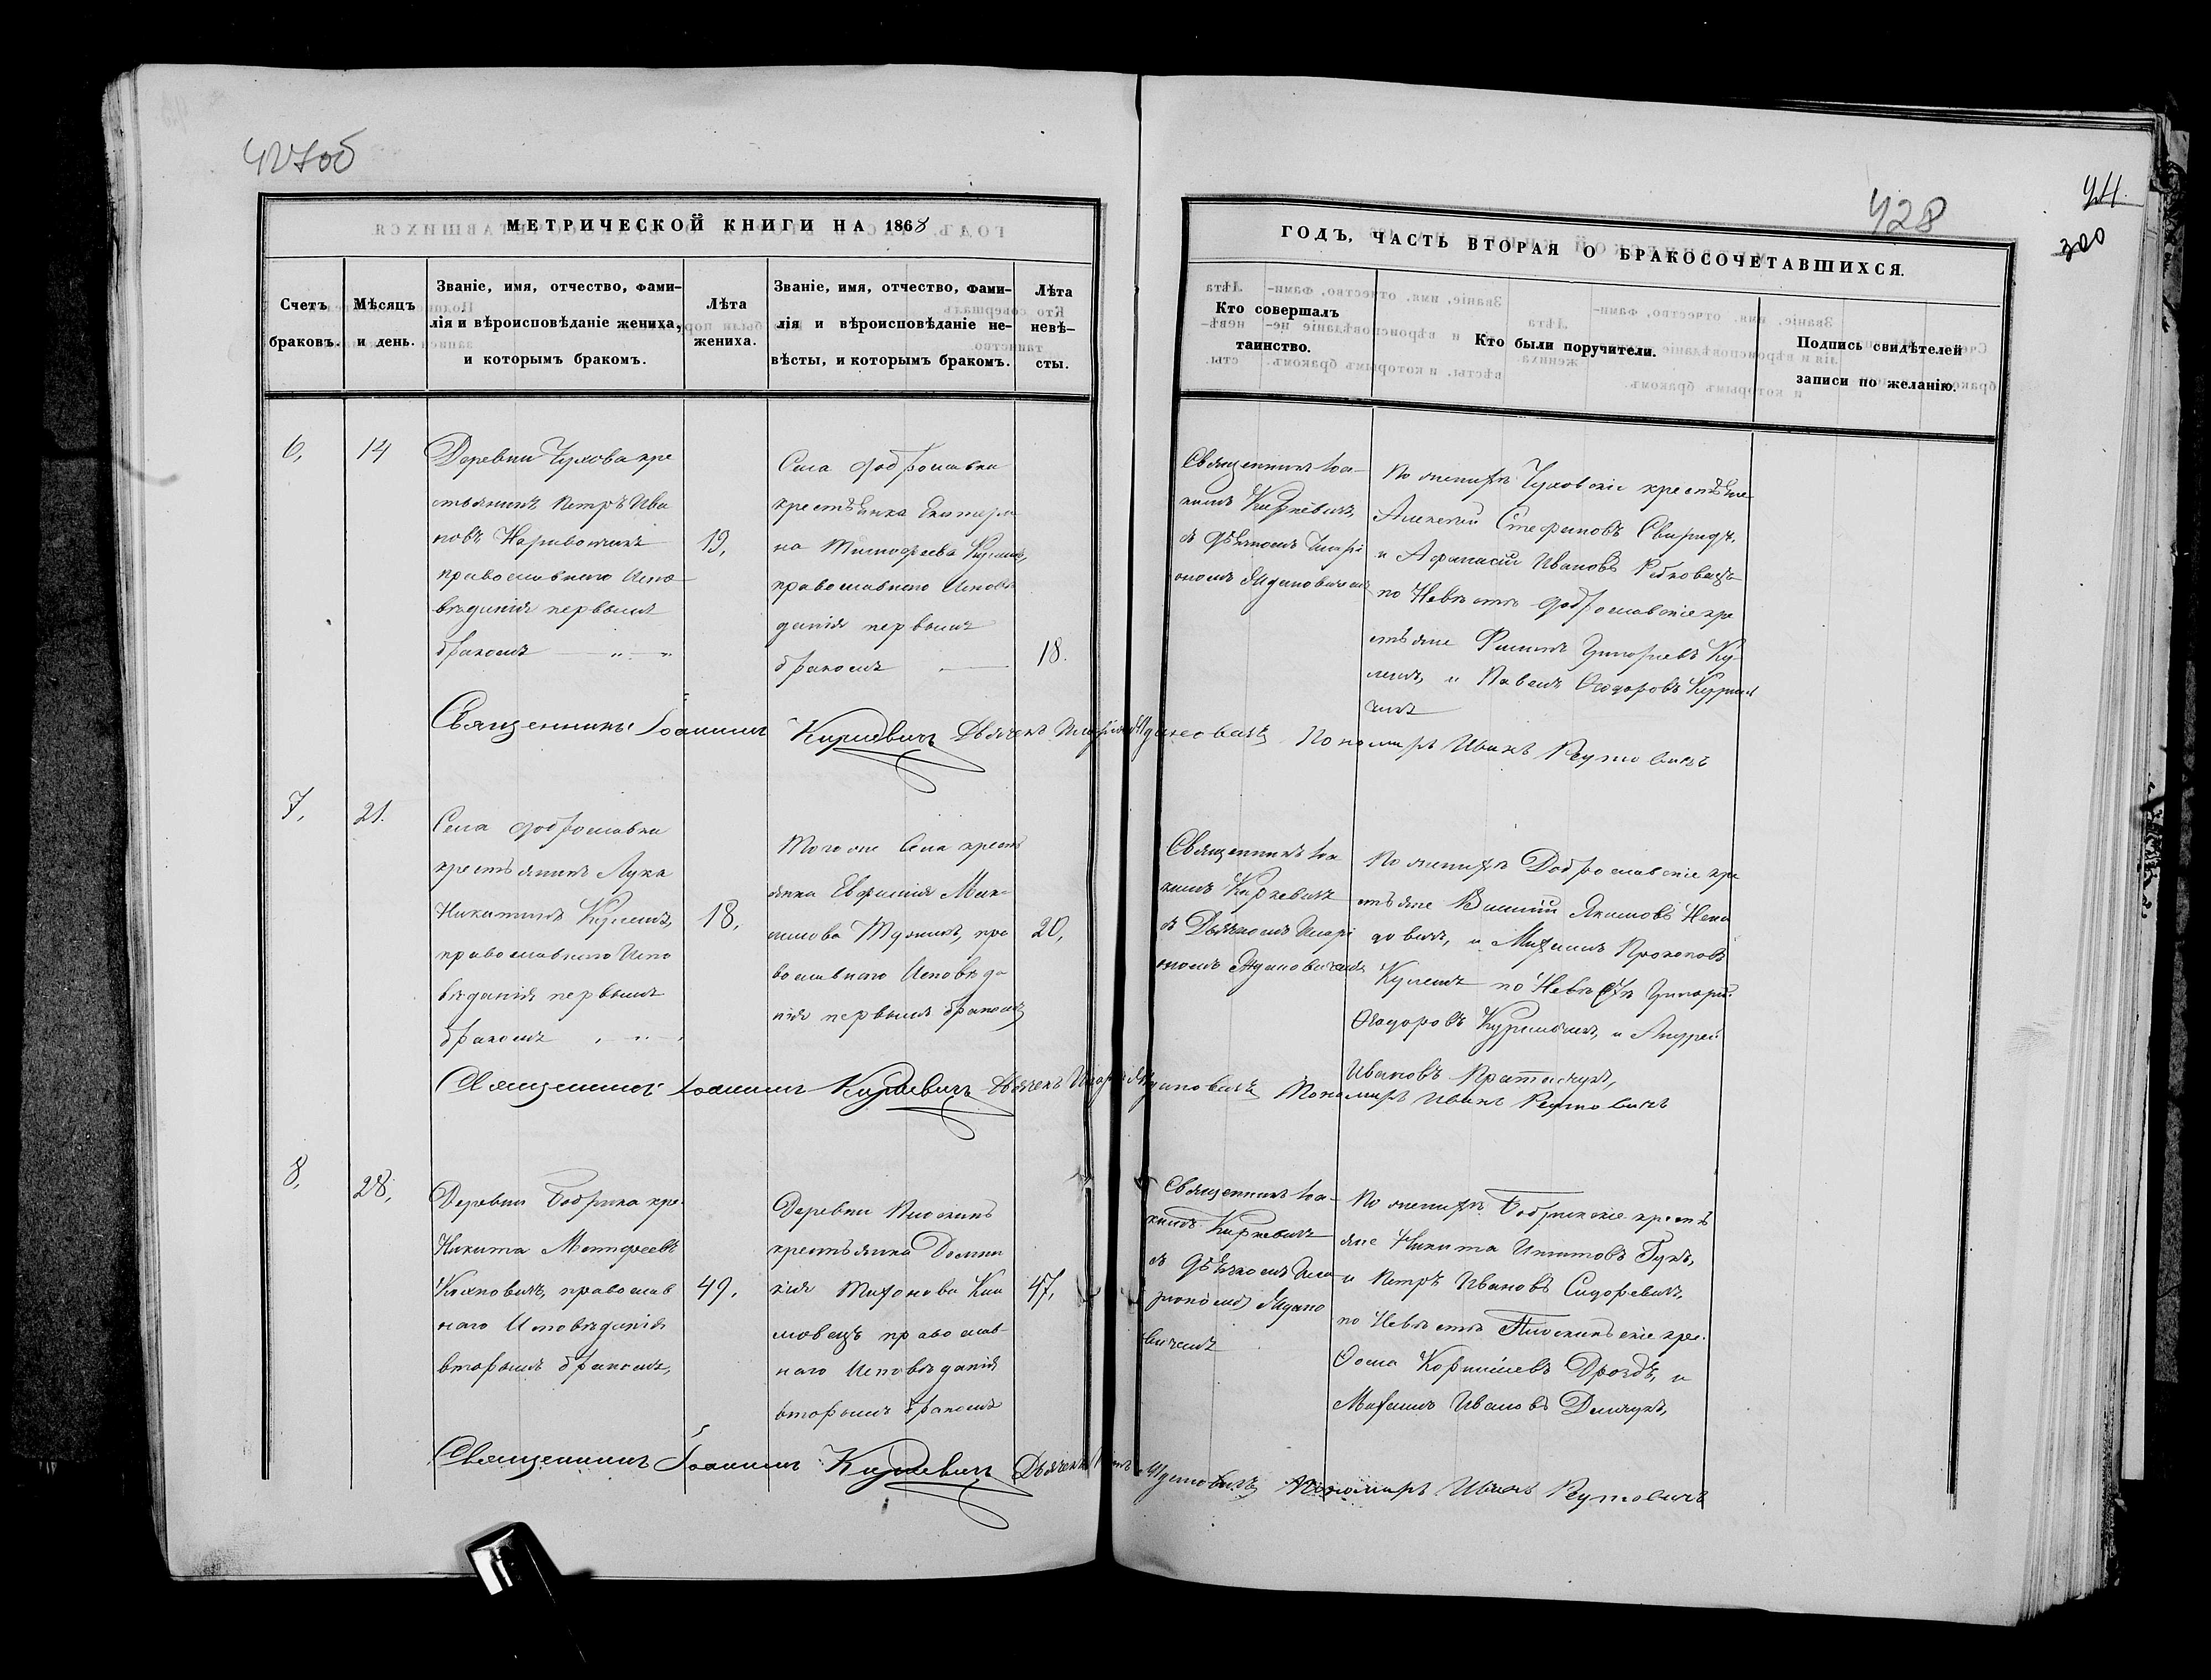 427об
МЕТРИЧЕСКОЙ КНИГИ НА 1868
Счетъ браковъ.
Мѣсяцъ и день.
Званіе, имя, отчество, фами-
лія и вѣроисповѣданіе жениха,
и которымъ бракомъ.
Лѣта жениха.
Званіе, имя, отчество, фами-
лія и вѣроисповѣданіе не-
вѣсты, и которымъ бракомъ.
Лѣта невѣ-
сты.
428
44.
300
ГОДЪ, ЧАСТЬ ВТОРАЯ О БРАКОСОЧЕТАВШИХСЯ.
Кто совершалъ
таинство.
Кто были поручители.
Подпись свидѣтелей
записи по желанію.
6,
14
Деревни Чухова кре
стьянинъ Петръ Ива
новъ
православнаго Испо
вѣданія первымъ
бракомъ
19,
Села Доброславки
крестьянка Екатери
на Тимофеева Кулешъ,
православнаго Исповѣ
данія первымъ
бракомъ
18.
Священникъ Іоа-
кимъ Киркевичъ,
съ Дьячкомъ Илларі
ономъ Ждановичемъ
По женихѣ Чуховскіе крестьяне
Алексѣй Стефановъ Свиридъ,
и Афанасій Ивановъ
по Невѣстѣ Доброславскіе кре
стьяне Филипъ Григорьевъ Ку-
лешъ, и Павелъ Ѳеодоровъ
Священникъ Іоакимъ Киркевичъ Дьячекъ Илларіонъ Ждановичъ Пономарь Иванъ Реутовичъ
7,
21.
Села Доброславки
крестьянинъ Лука
Никитинъ Кулешъ,
православнаго Испо
вѣданія первымъ
бракомъ
18,
Того же Села кресть
янка Евфимія Мак-
симова пра
вославнаго Исповѣда
нія первымъ бракомъ
20,
Священникъ Іоа
кимъ Киркевичъ
съ Дьячкомъ Илларі
ономъ Ждановичемъ
По женихѣ Доброславскіе кре
стьяне Василій Якимовъ
и Михаилъ Прокоповъ
Кулешъ по Невѣстѣ Григорій
Ѳеодоровъ и Андрей
Ивановъ
Священникъ Іоакимъ Киркевичъ Дьячекъ Илларіонъ Ждановичъ Пономарь Иванъ Реутовичъ
8,
28,
Деревни Бобрика кре.
Никита Матфеевъ
православ
наго Исповѣданія
вторымъ бракомъ,
49,
Деревни Плоскинь
крестьянка Домни
кія Тихонова Кли
мовецъ православ-
наго Исповѣданія
вторымъ бракомъ
47,
Священникъ Іоа-
кимъ Киркевичъ
съ Дьячкомъ Илла
ріономъ Ждано
вичемъ
По женихѣ Бобрикскіе кресть
яне Никита Игнатовъ
и Петръ Ивановъ Сидоревичъ,
по Невѣстѣ Плоскинскіе кре.
Ѳома Корнилевъ Дроздъ, и
Михаилъ Ивановъ Демчукъ,
Священникъ Іоакимъ Киркевичъ Дьячекъ Ждановичъ Пономарь Иванъ Реутовичъ